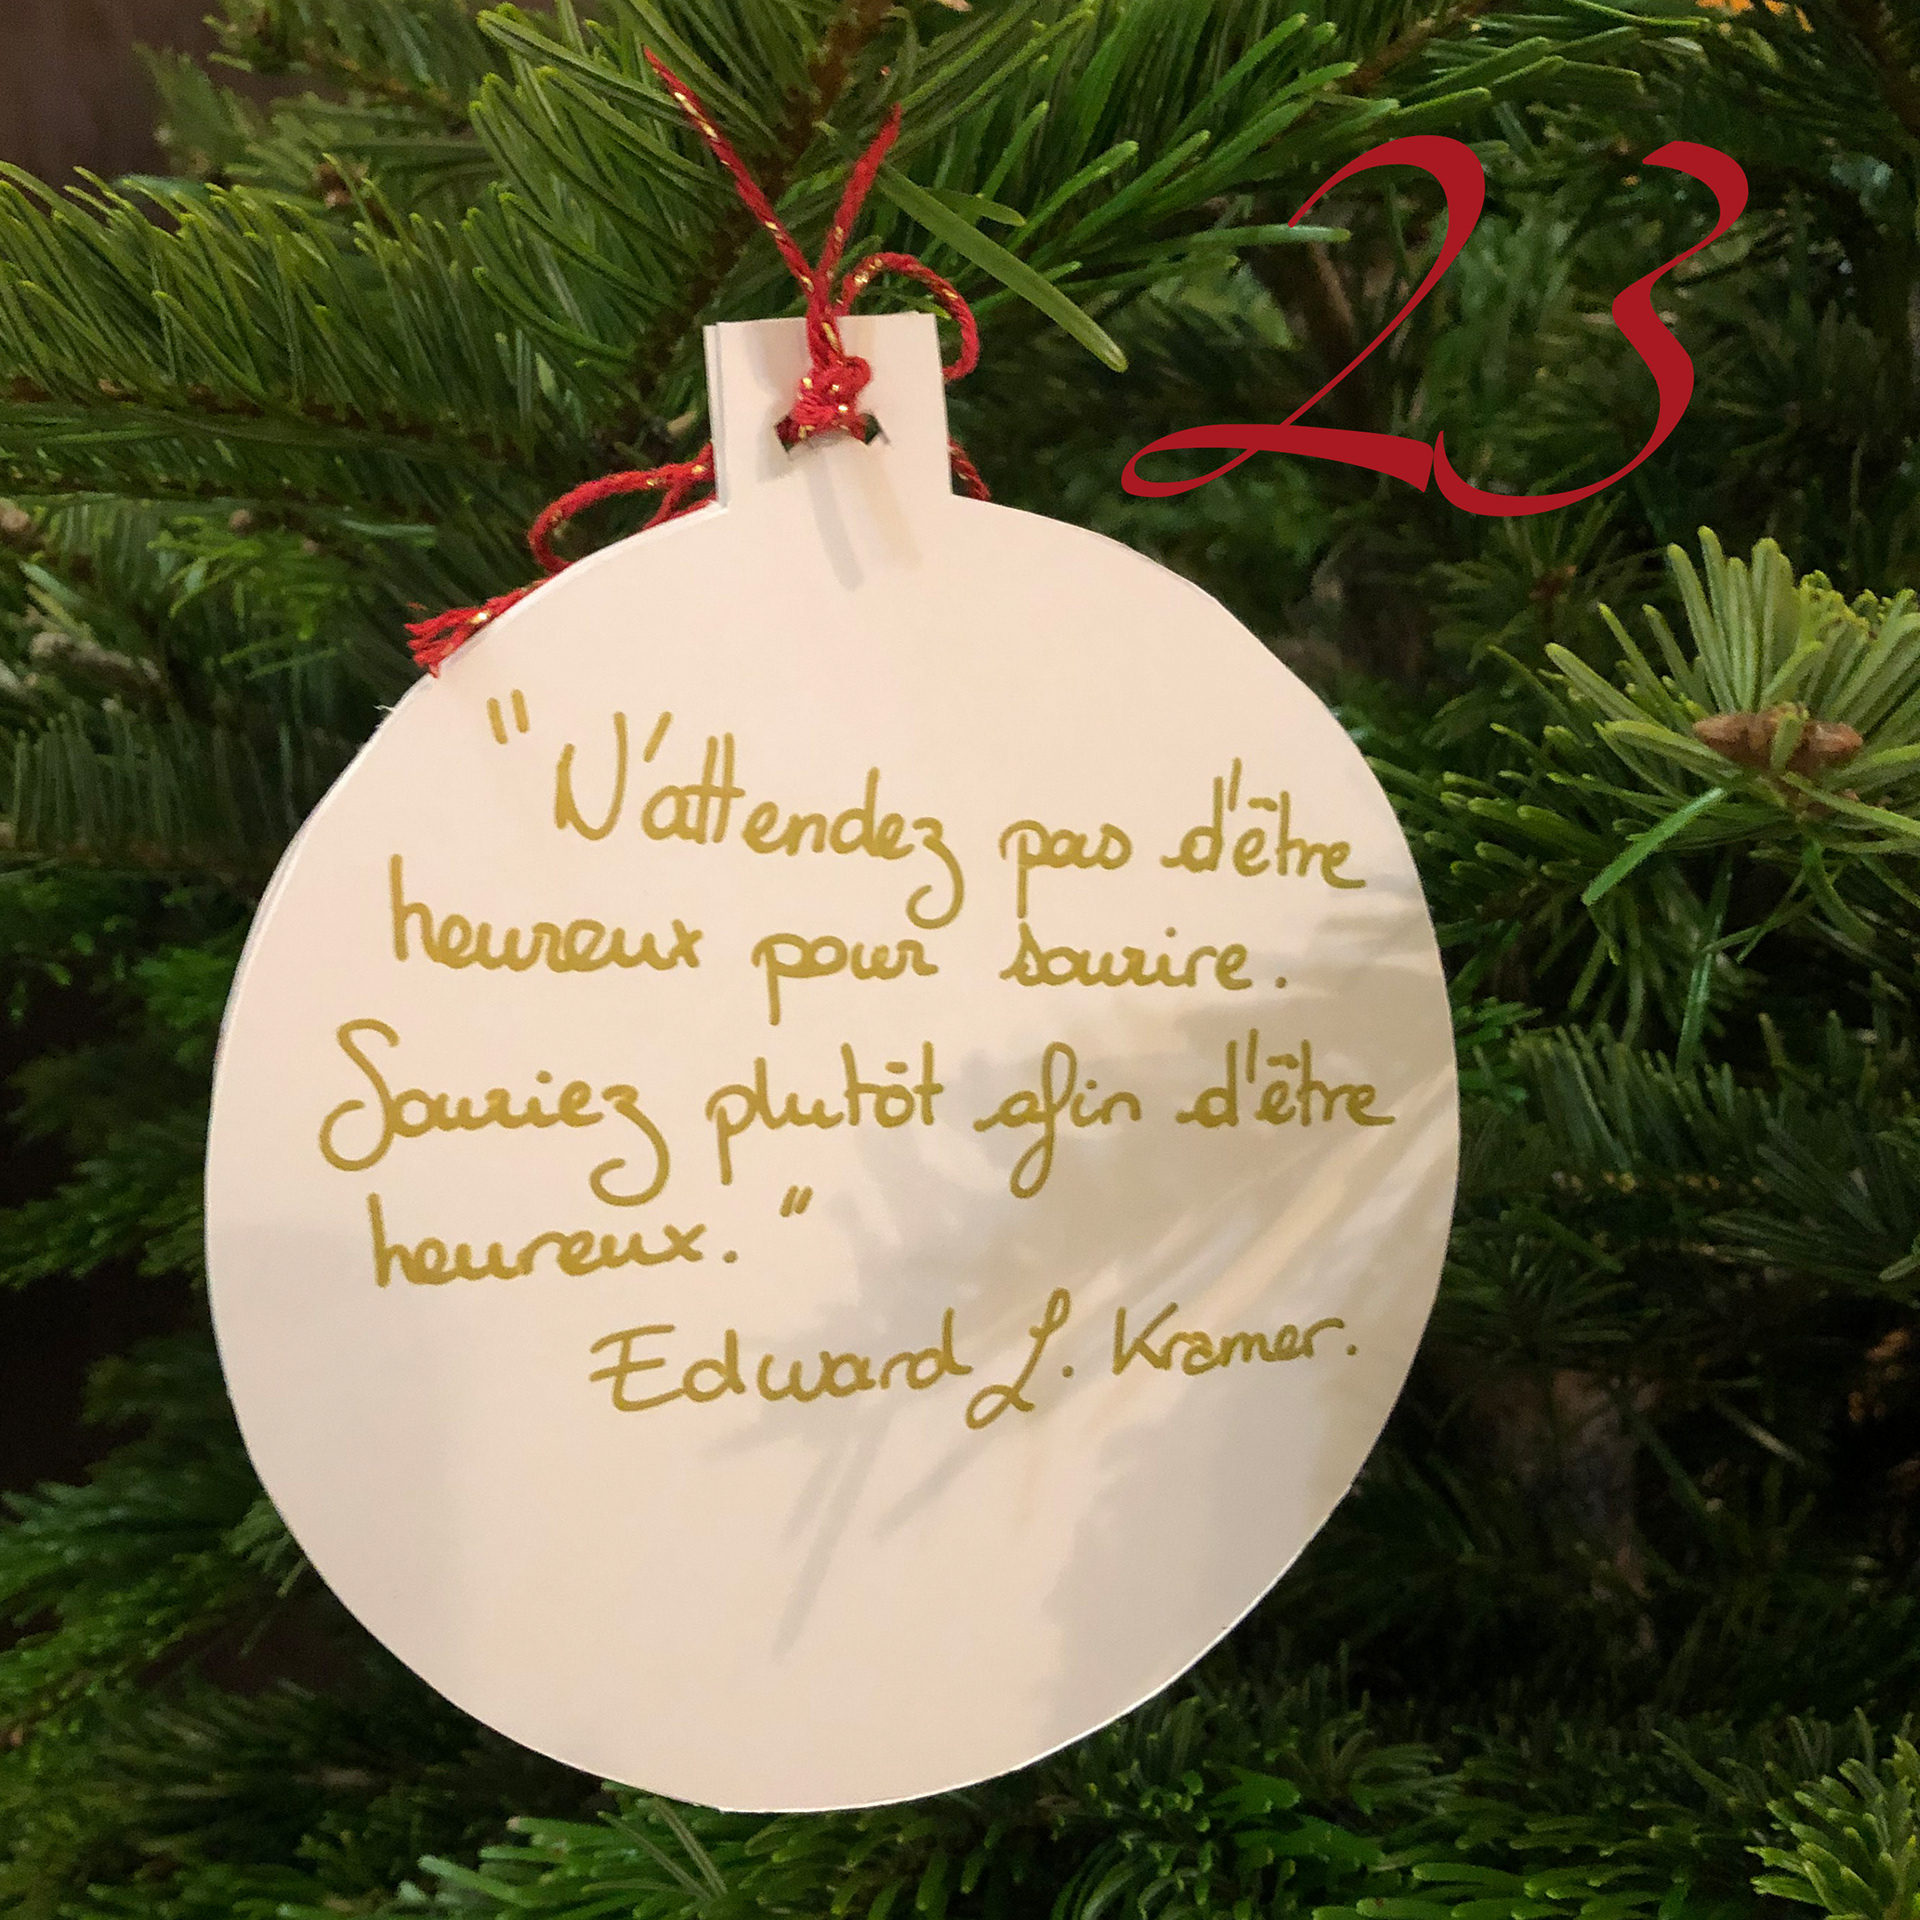 23
"N'attendez pas d'être
heureux pour sourire.
Souriez plutôt afin d'être
heureux."
Edward L. Kramer.